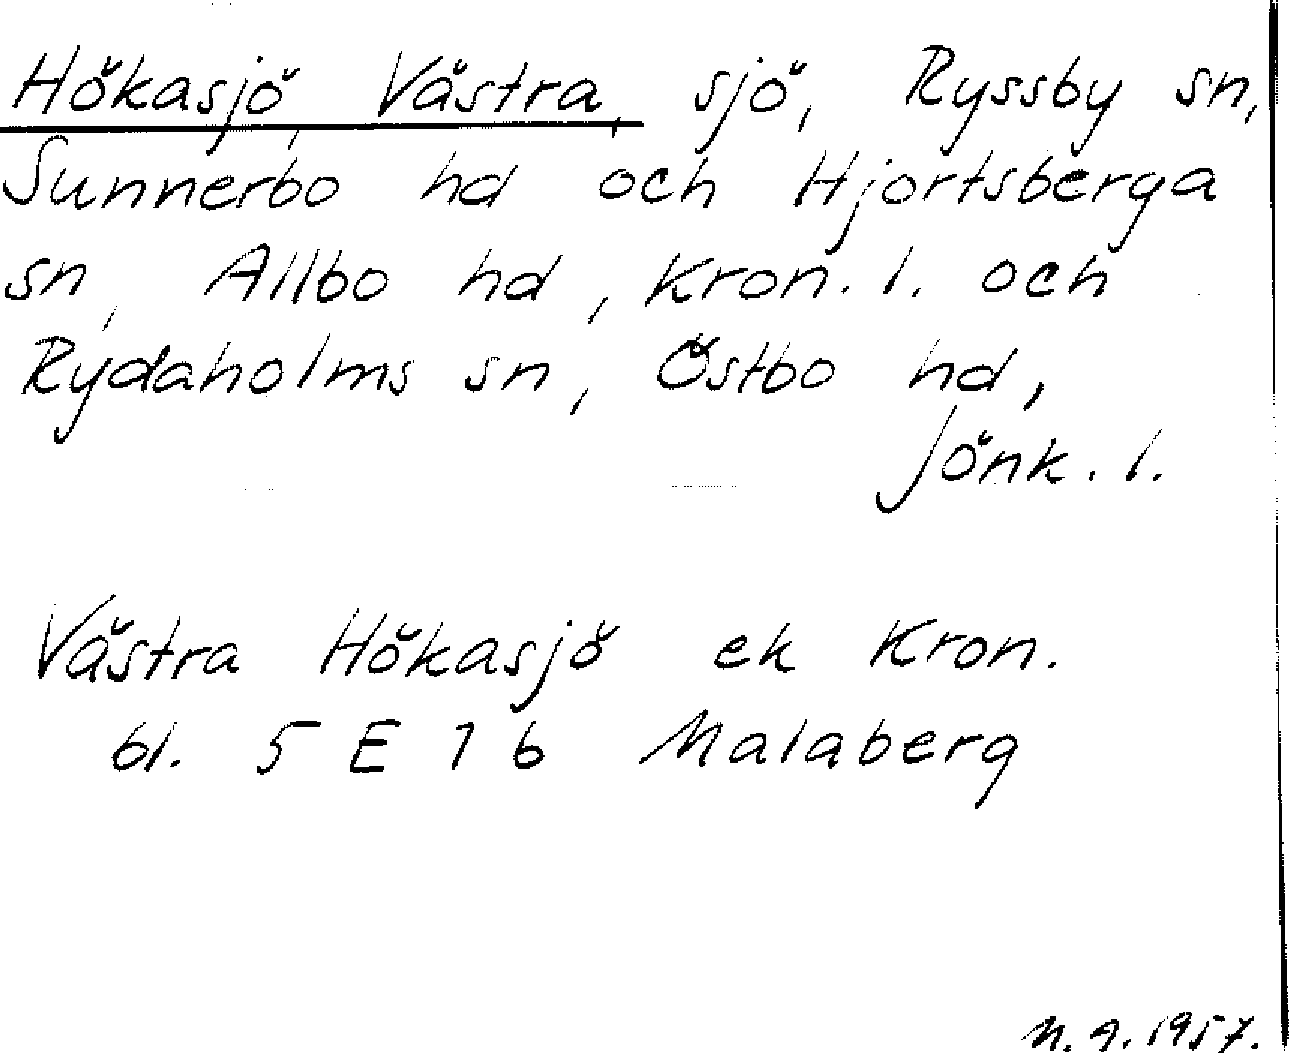 Hökasjö, Västra, sjö, Ryssby sn,
Sunnerbo hd och Hjortsberga
sn, Allbo hd, Kron. l. och
Rydaholms sn, Östbo hd,
Jönk. l.
Västra Hökasjö ek Kron.
bl. 5 E 1 b Malaberg
N. A. 1957.